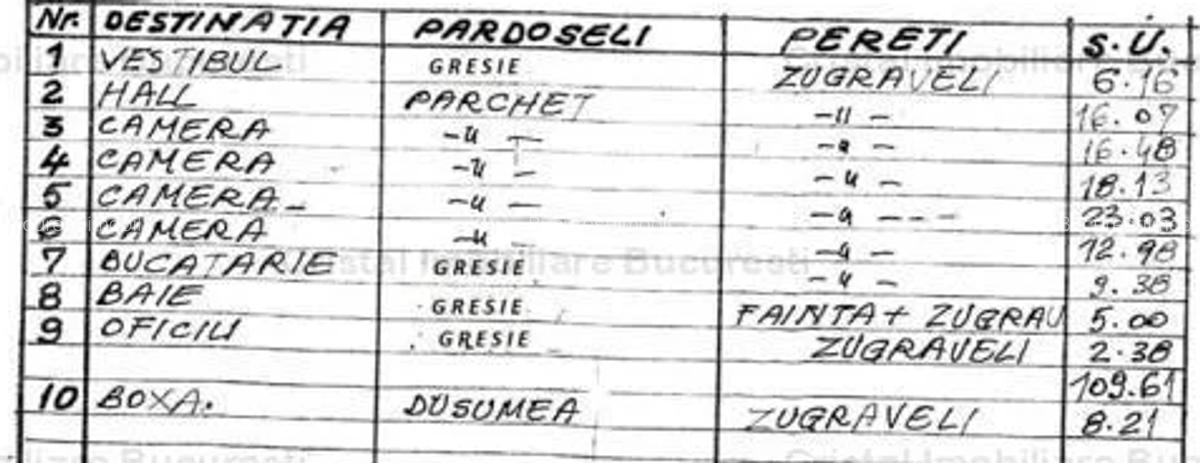 Nr. DESTINATIA PARDOSELI PERETI S.U.
1 VESTIBUL GRESIE ZUGRAVELI 6.16
2 HALL PARCHET -11- 16.07
3 CAMERA -u- -u- 16.48
4 CAMERA -u- -u- 18.13
5 CAMERA -u- -u- 23.03
6 CAMERA -u- -u- 12.98
7 BUCATARIE GRESIE -u- 9.38
8 BAIE GRESIE FAINTA+ ZUGRAV 5.00
9 OFICIU GRESIE ZUGRAVELI 2.38
109.61
10 BOXA. DUSUMEA ZUGRAVELI 8.21
Cristal Imobiliare Bucuresti